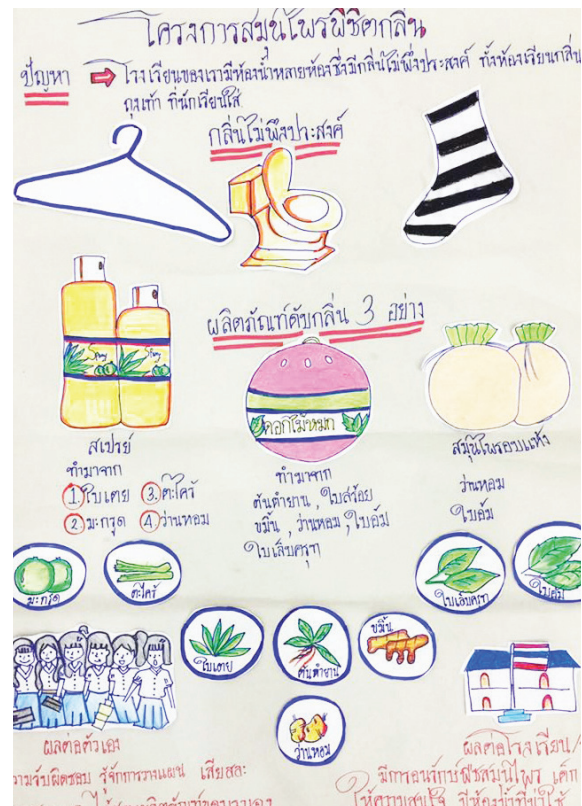 โครงการสมุนไพรพิชิตกลิ่น
ปัญหา โรงเรียนของเรามีห้องน้ำหลายห้องซึ่งมีกลิ่นไม่พึงประสงค์ ทั้งห้องเรียนกลิ่น
ถุงเท้า ที่นักเรียนใส่
กลิ่นไม่พึงประสงค์
ผลิตภัณฑ์ดับกลิ่น 3 อย่าง
Spray
Spray
ดอกไม้หมก
สเปรย์
ทำมาจาก
1. ใบเตย 3. ตะไคร้
2. มะกรูด 4. ว่านหอม
ทำมาจาก
ต้นกำยาน, ใบสร้อย
ขมิ้น, ว่านหอม, ใบอ้ม
ใบเล็บครุฑ
สมุนไพรอบแห้ง
ว่านหอม
ใบอ้ม
มะกรูด
ตะไคร้
ใบเตย
ต้นกำยาน
ขมิ้น
ใบเล็บครุฑ
ใบอ้ม
ว่านหอม
ผลต่อตัวเอง
ความรับผิดชอบ รู้จักการวางแผน เสียสละ
ผลต่อโรงเรียน/
มีการอนุรักษ์พืชสมุนไพร เด็ก